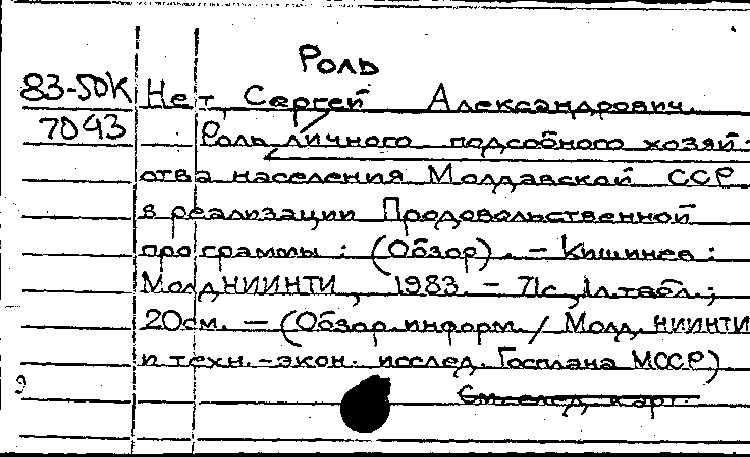 Роль
83-50К Нет, Сергей Александрович.
7043 Роль личного подсобного хозяй-
ства населения Молдавской ССР
в реализации Продовольственной
программы : (Обзор). - Кишинев :
МолдНИИНТИ, 1983. - 71с., 1л.табл.;
20см. - (Обзор.информ. / Молд. НИИНТИ
и техн.-экон. исслед. Госплана МССР)
См. след. карт.
9